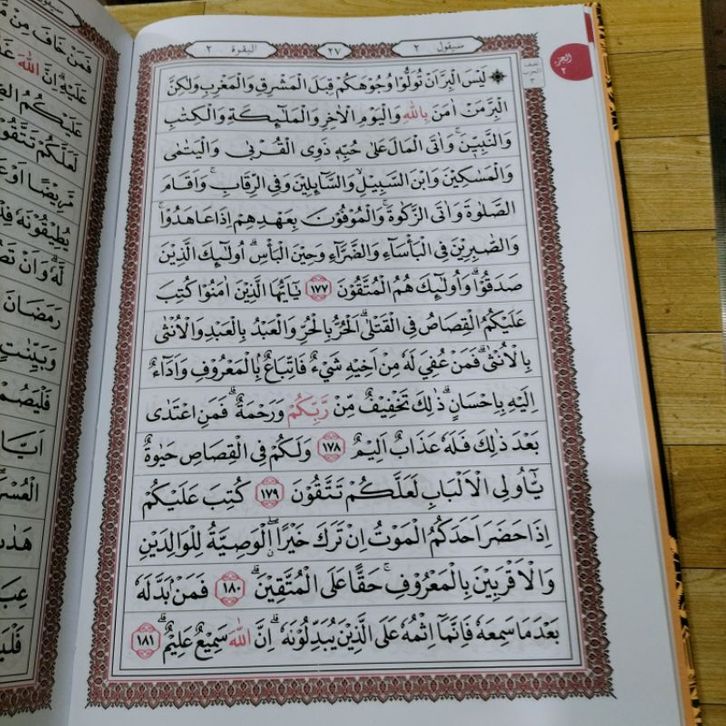 سيقول ٢ ٢٧ البقرة ٢
الجزء ٢
نصف الحزب
۞ لَيْسَ الْبِرَّ اَنْ تُوَلُّوْا وُجُوْهَكُمْ قِبَلَ الْمَشْرِقِ وَالْمَغْرِبِ وَلٰكِنَّ
الْبِرَّ مَنْ اٰمَنَ بِاللّٰهِ وَالْيَوْمِ الْاٰخِرِ وَالْمَلٰۤىِٕكَةِ وَالْكِتٰبِ
وَالنَّبِيّٖنَ ۚ وَاٰتَى الْمَالَ عَلٰى حُبِّهٖ ذَوِى الْقُرْبٰى وَالْيَتٰمٰى
وَالْمَسٰكِيْنَ وَابْنَ السَّبِيْلِ ۙ وَالسَّاۤىِٕلِيْنَ وَفِى الرِّقَابِ ۚ وَاَقَامَ
الصَّلٰوةَ وَاٰتَى الزَّكٰوةَ ۚ وَالْمُوْفُوْنَ بِعَهْدِهِمْ اِذَا عَاهَدُوْا ۚ
وَالصّٰبِرِيْنَ فِى الْبَأْسَاۤءِ وَالضَّرَّاۤءِ وَحِيْنَ الْبَأْسِ ۗ اُولٰۤىِٕكَ الَّذِيْنَ
صَدَقُوْا ۗ وَاُولٰۤىِٕكَ هُمُ الْمُتَّقُوْنَ ١٧٧ يٰٓاَيُّهَا الَّذِيْنَ اٰمَنُوْا كُتِبَ
عَلَيْكُمُ الْقِصَاصُ فِى الْقَتْلٰى ۗ اَلْحُرُّ بِالْحُرِّ وَالْعَبْدُ بِالْعَبْدِ وَالْاُنْثٰى
بِالْاُنْثٰى ۗ فَمَنْ عُفِيَ لَهٗ مِنْ اَخِيْهِ شَيْءٌ فَاتِّبَاعٌ ۢ بِالْمَعْرُوْفِ وَاَدَاۤءٌ
اِلَيْهِ بِاِحْسَانٍ ۗ ذٰلِكَ تَخْفِيْفٌ مِّنْ رَّبِّكُمْ وَرَحْمَةٌ ۗ فَمَنِ اعْتَدٰى
بَعْدَ ذٰلِكَ فَلَهٗ عَذَابٌ اَلِيْمٌ ١٧٨ وَلَكُمْ فِى الْقِصَاصِ حَيٰوةٌ
يّٰٓاُولِى الْاَلْبَابِ لَعَلَّكُمْ تَتَّقُوْنَ ١٧٩ كُتِبَ عَلَيْكُمْ
اِذَا حَضَرَ اَحَدَكُمُ الْمَوْتُ اِنْ تَرَكَ خَيْرًا ۖ ۨالْوَصِيَّةُ لِلْوَالِدَيْنِ
وَالْاَقْرَبِيْنَ بِالْمَعْرُوْفِ ۚ حَقًّا عَلَى الْمُتَّقِيْنَ ۗ ١٨٠ فَمَنْ بَدَّلَهٗ
بَعْدَمَا سَمِعَهٗ فَاِنَّمَآ اِثْمُهٗ عَلَى الَّذِيْنَ يُبَدِّلُوْنَهٗ ۗ اِنَّ اللّٰهَ سَمِيْعٌ عَلِيْمٌ ۗ ١٨١
فَمَنْ خَافَ مِنْ
عَلَيْهِ ۗ اِنَّ اللّٰهَ
عَلَيْكُمُ
لَعَلَّكُمْ
مَّرِيْضًا اَوْ
يُطِيْقُوْنَهٗ
لَّهٗ ۗ وَاَنْ
رَمَضَانَ
وَبَيِّنٰتٍ
فَلْيَصُمْ
اَيَّا
هَدٰى